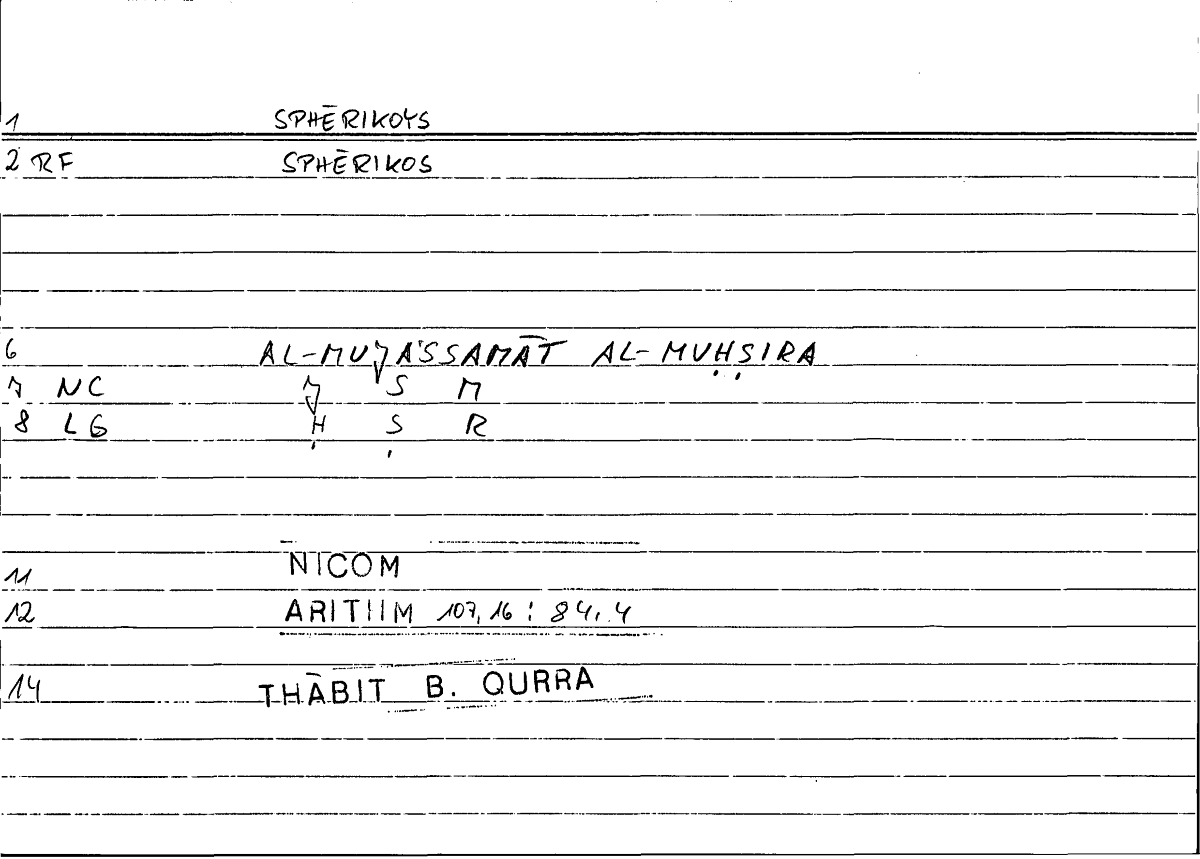 1 SPHĒRIKOYS
2 RF SPHĒRIKOS
6 AL-MUǦASSAMĀT AL-MUḤṢIRA
7 NC Ǧ S M
8 LG Ḥ Ṣ R
11 NICOM
12 ARITIIM 107,16 : 84,4
14 THĀBIT B. QURRA